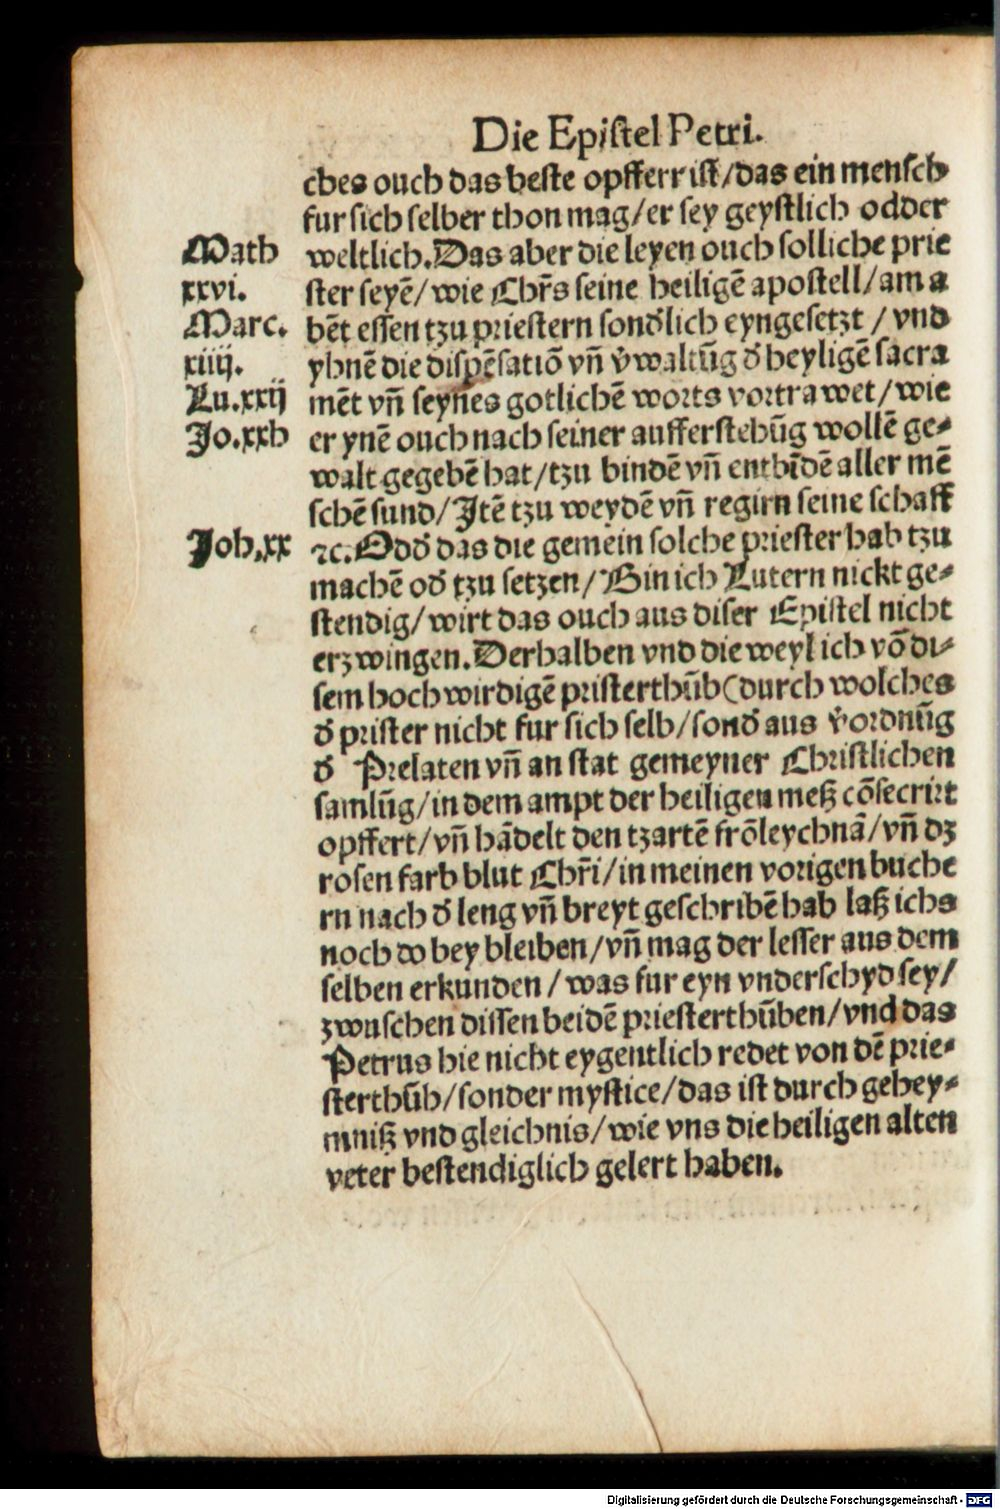 Die Epistel Petri.
ches ouch das beste opfferr ist/das ein mensch
fur sich selber thon mag/er sey geystlich odder
Math
weltlich.Das aber die leyen ouch solliche prie
xxvi.
ster seyē/wie Chr̄s seine heiligē apostell/am a
Marc.
bēt essen tzu priestern sonđlich eyngesetzt/vnd
xiiij.
yhnē die dispēsatiō vn̄ v̓waltūg đ heyligē sacra
Lu.xxij
mēt vn̄ seyn̄es gotlichē worts vortrawet/wie
Jo.xxb
er ynē ouch nach seiner aufferstehūg wollē ge⸗
walt gegebē hat/tzu bindē vn̄ entbīdē aller mē
schē sund/Jtē tzu weydē vn̄ regirn seine schaff
Joh.xx
ꝛc.Odđ das die gemein solche priester hab tzu
machē ođ tzu setzen/Bin ich Lutern nickt ge⸗
stendig/wirt das ouch aus diser Epistel nicht
erzwingen.Derhalben vnd die weyl ich vō di⸗
sem hochwirdigē pristerthūb(durch wolches
đ prister nicht fur sich selb/sonđ aus v̓ordnūg
đ Prelaten vn̄ an stat gemeyner Christlichen
samlūg/in dem ampt der heiligen meß cōsecrirt
opffert/vn̄ hādelt den tzartē frōleychnā/vn̄ dz
rosen farb blut Chr̄i/in meinen vorigen buche
rn nach đ leng vn̄ breyt geschribē hab laß ichs
noch do bey bleiben/vn̄ mag der lesser aus dem
selben erkunden/was fur eyn vnderschyd sey/
zwuschen dissen beidē priesterthūben/vnd das
Petrus hie nicht eygentlich redet von dē prie⸗
sterthūb/sonder mystice/das ist durch gehey⸗
mniß vnd gleichnis/wie vns die heiligen alten
veter bestendiglich gelert haben.
Digitalisierung gefördert durch die Deutsche Forschungsgemeinschaft - DFG